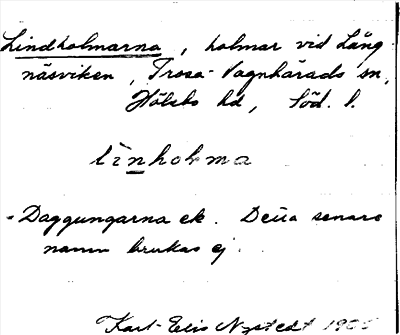 Lindholmarna, holmar vid Lång
näsviken, Trosa-Vagnhärads sn,
Hölebo hd, Söd. l.
lìnholma
=Daggungarna ek. Detta senare
namn brukas ej.
Karl-Elis Nystedt